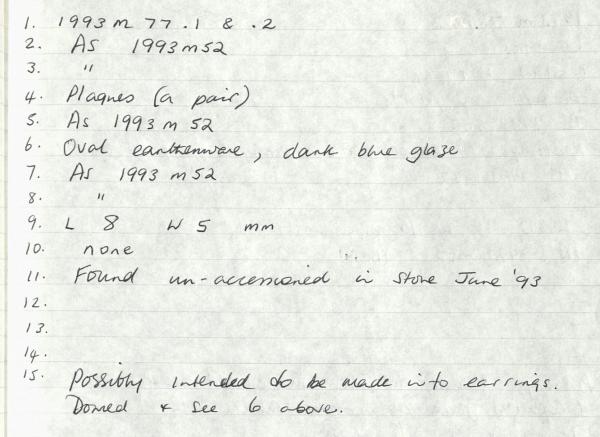 1. 1993 m 77 .1 & .2
2. As 1993 m 52
3. "
4. Plaques (a pair)
5. As 1993 m 52
6. Oval earthenware, dark blue glaze
7. As 1993 m 52
8. "
9. L 8 W 5 mm
10. none
11. Found un-accessioned in store June '93
12.
13.
14.
15. Possibly intended to be made into earrings.
Domed & see 6 above.